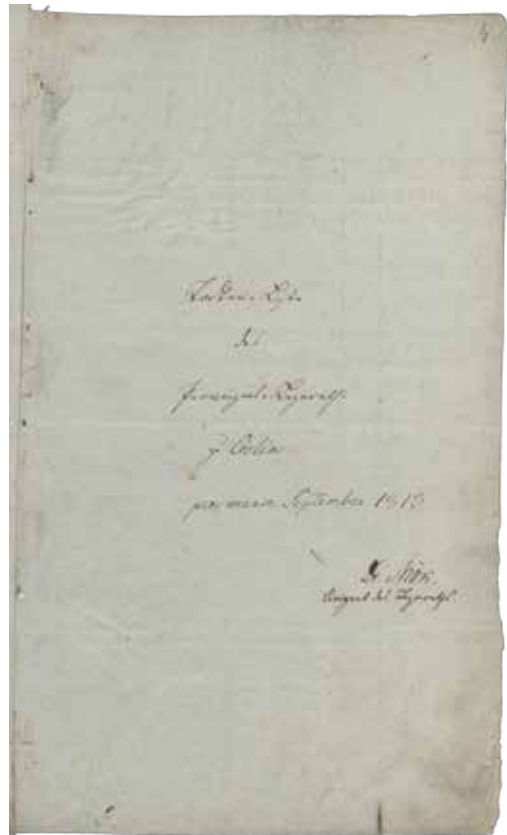 Todten-Liste
des
Provinzial-Lazareths
z. Cöslin
pro mense September 1813
Dr
Dirigent des Lazareths